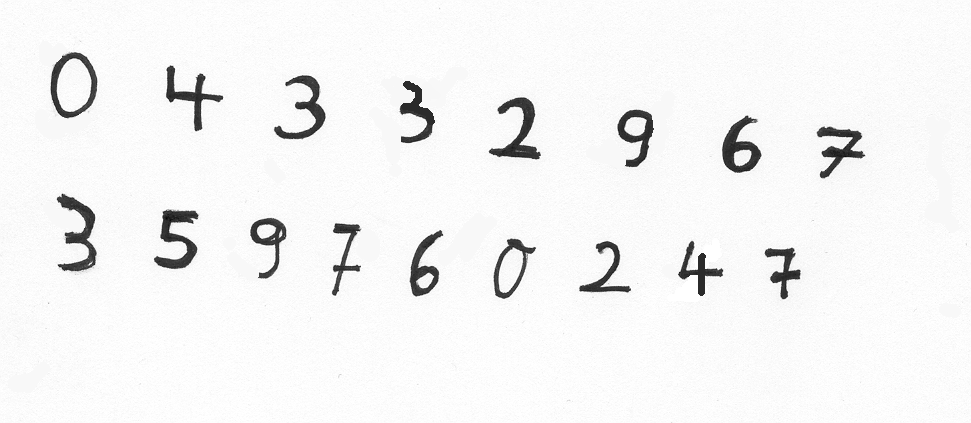 0 4 3 3 2 9 6 7
3 5 9 7 6 0 2 4 7